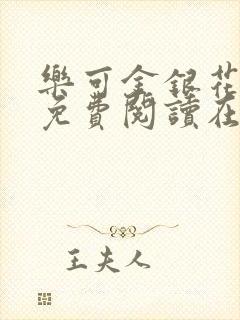 樂可金銀花
免費閱讀在
王夫人